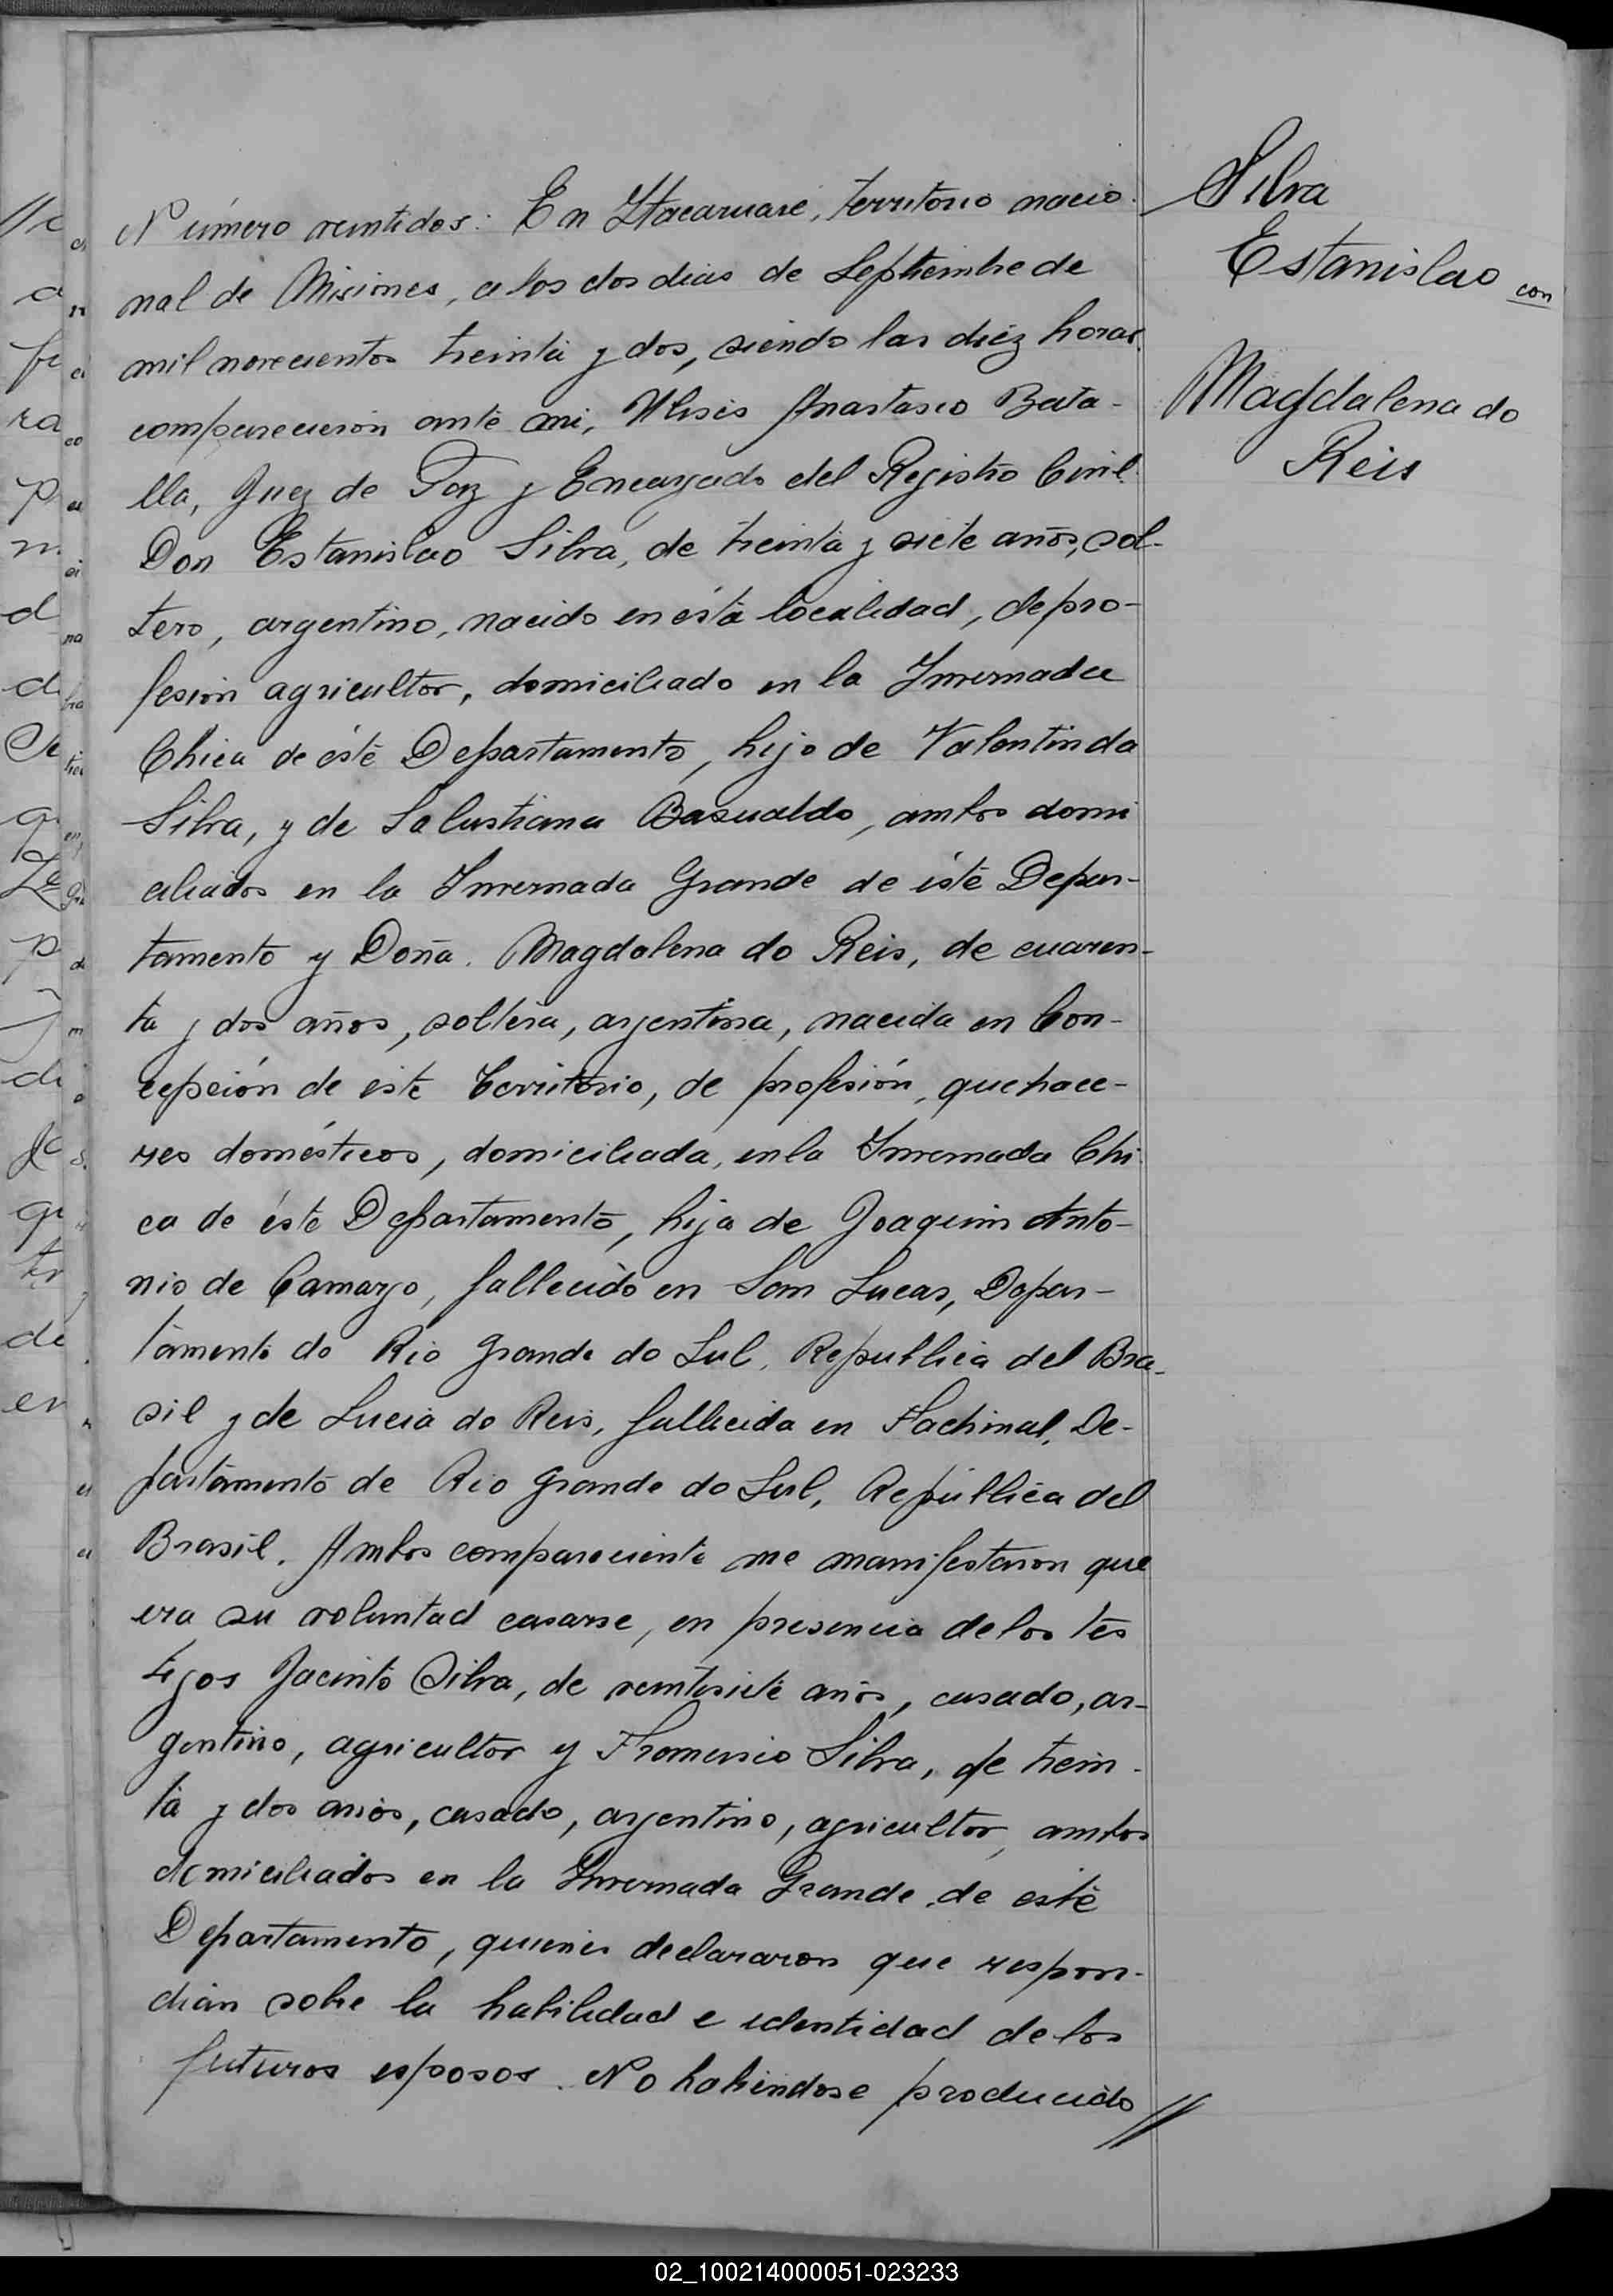 Número veintidos: En Itacaruaré, territorio nacio-
nal de Misiones, a los dos dias de Septiembre de
mil novecientos treinta y dos, siendo las diéz horas,
comparecieron ante mi, Ulisis Anastasio Bata-
lla, Juez de Paz y Encargado del Registro Civil:
Don Estanislao Silva, de treinta y siete años, sol-
tero, argentino, nacido en ésta localidad, de pro-
fesión agricultor, domiciliado en la Invernada
Chica de éste Departamento, hijo de Valentin da
Silva, y de Salustiana Basualdo, ambos domi
ciliados en la Invernada Grande de éste Depar-
tamento y Doña Magdalena do Reis, de cuaren-
ta y dos años, soltera, argentina, nacida en Con-
cepción de este Territorio, de profesión, quehace-
res domésticos, domiciliada, en la Invernada Chi
ca de éste Departamento, hija de Joaquin Anto-
nio de Camargo, fallecido en San Lucas, Depar-
tamento do Rio Grande do Sul, Republica del Bra-
sil y de Lucia do Reis, fallecida en Fachinal, De-
partamento de Rio Grande do Sul, República del
Brasil. Ambos compareciente me manifestaron que
era su voluntad casarse, en presencia de los tes
tigos Jacinto Silva, de veintisiete años, casado, ar-
gentino, agricultor y Silva, de trein-
ta y dos años, casado, argentino, agricultor, ambos
domiciliados en la Invernada Grande de este
Departamento, quienes declararon que respon-
dian sobre la habilidad e identidad de los
futuros esposos. No habiendose producido //
Silva
Estanislao con
Magdalena do
Reis
02_100214000051-023233